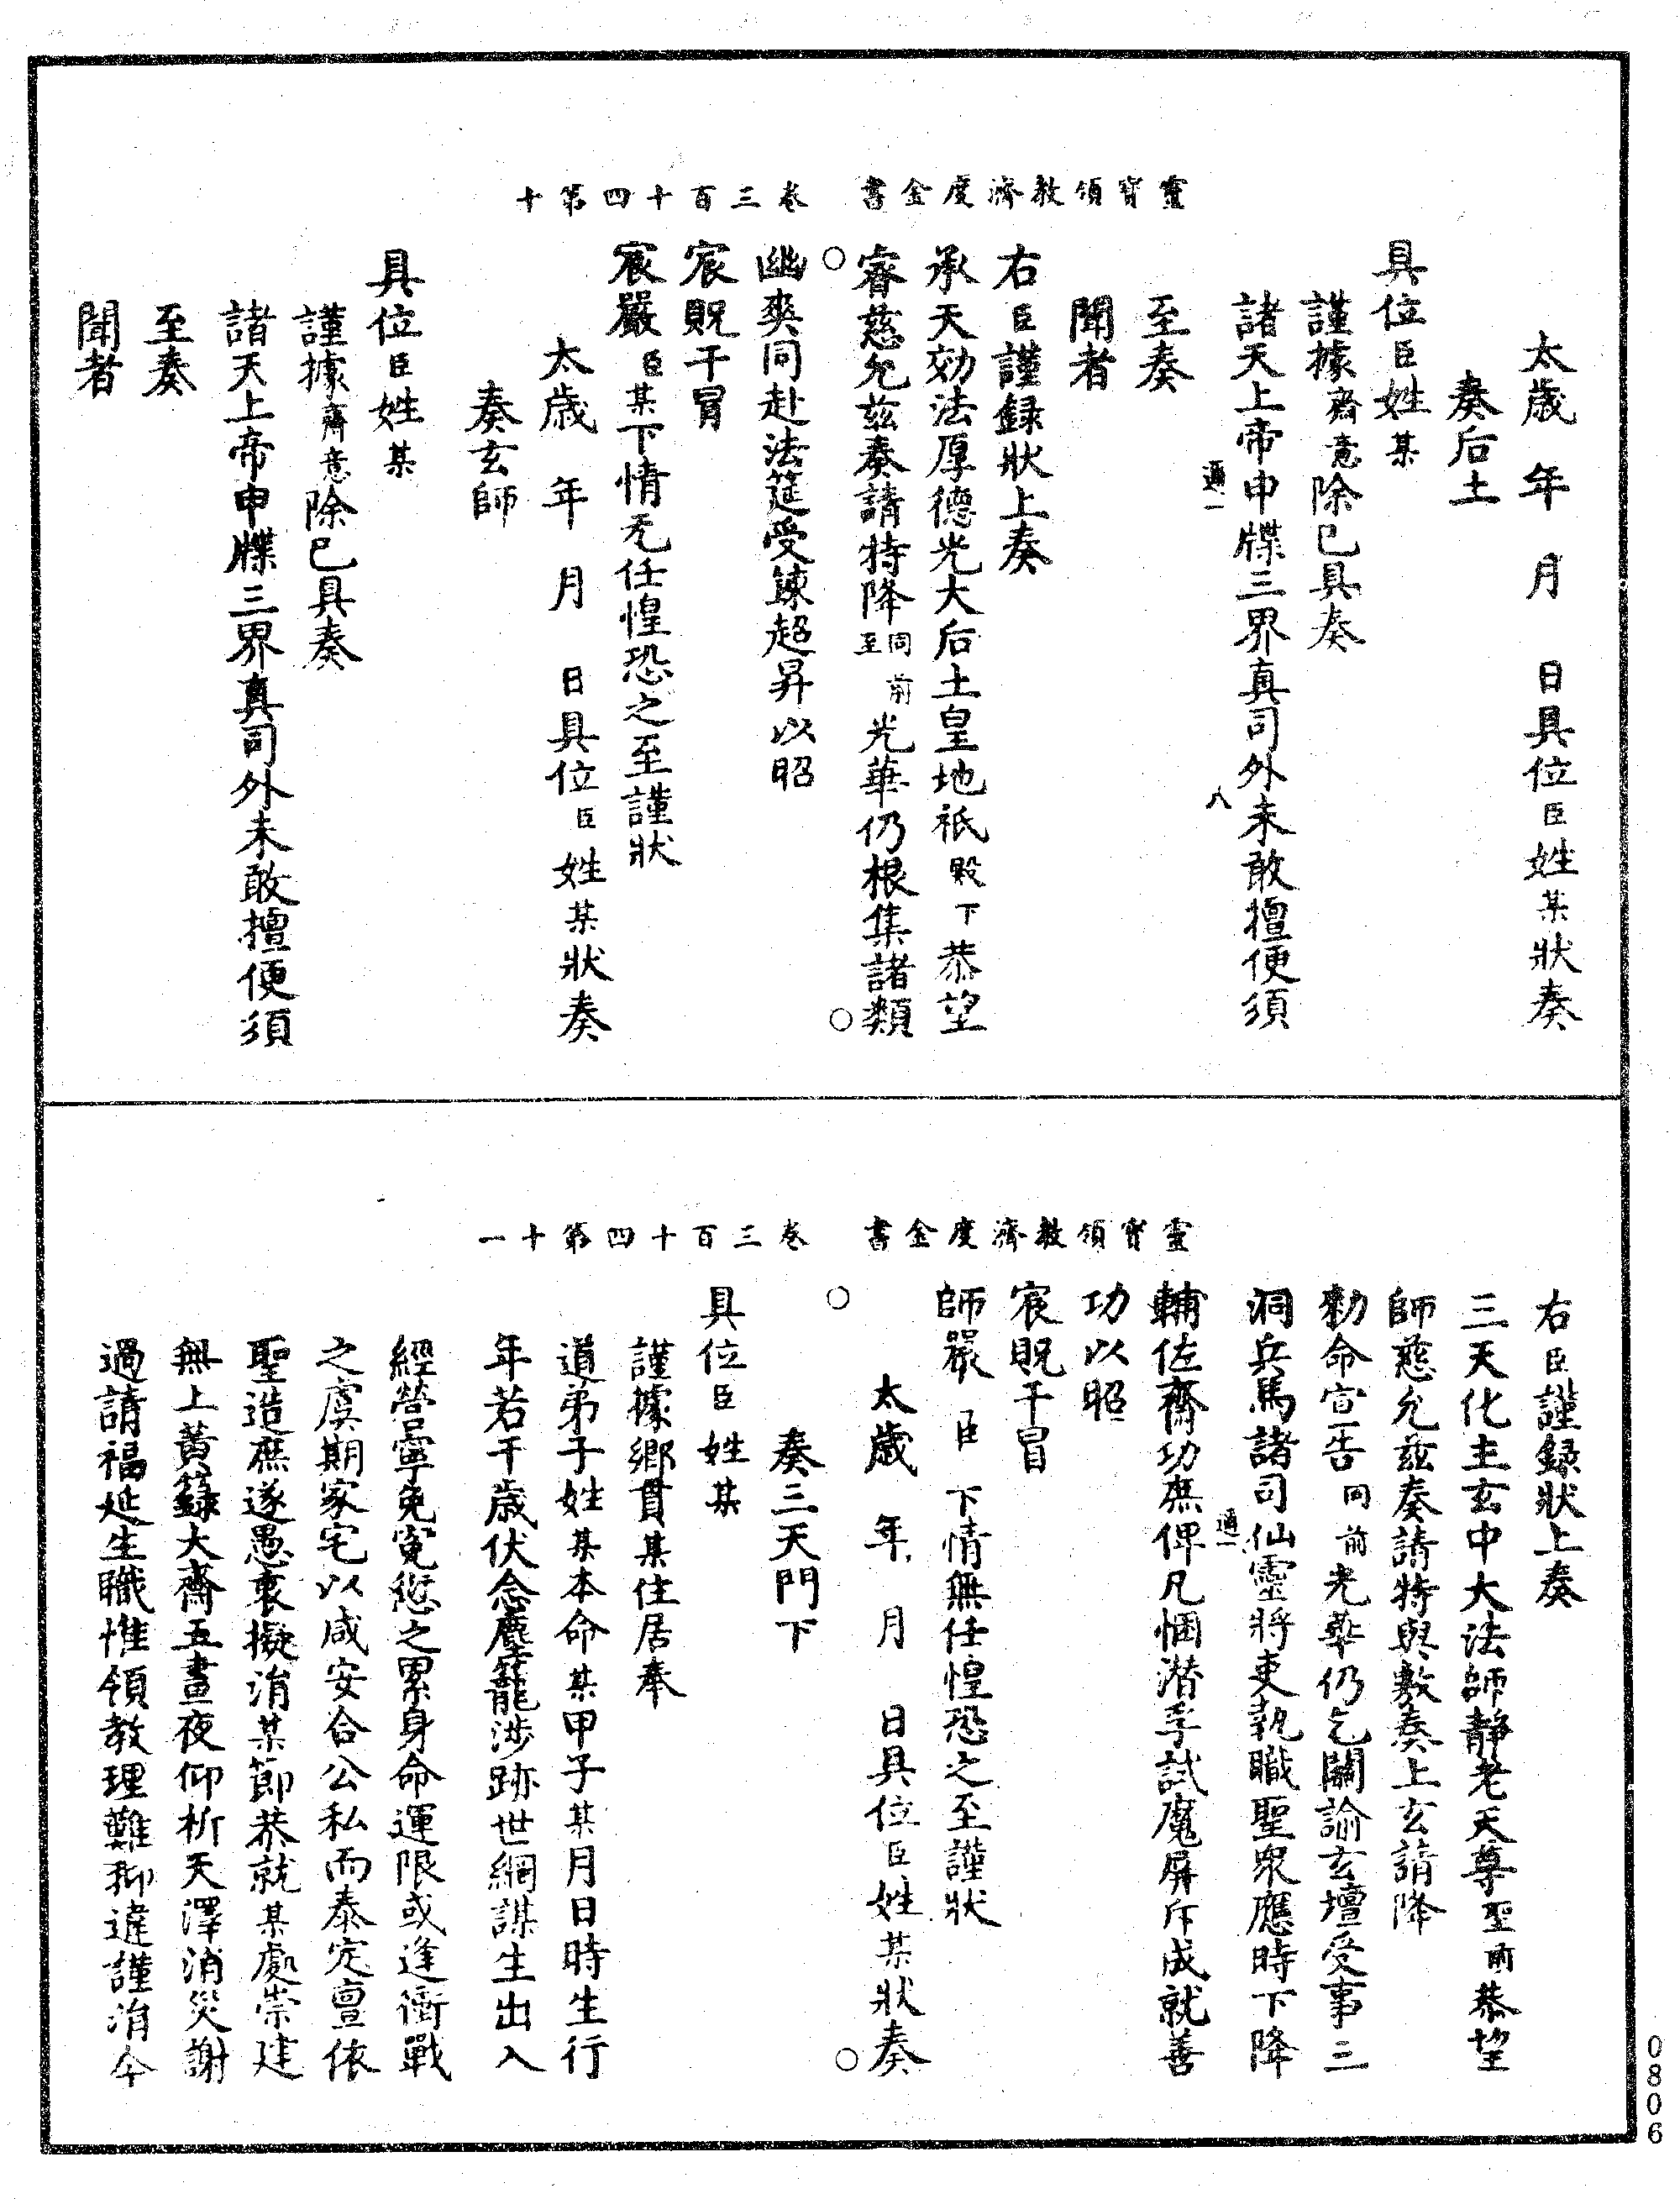 靈寶領教濟度金書 卷三百十四第十
太歲 年 月 日具位臣姓某狀奏
奏后土
具位臣姓某
謹據齋意除已具奏
諸天上帝申牒三界真司外未敢擅便須
通一 八
至奏
聞者
右臣謹録狀上奏
承天効法厚德光大后土皇地祇殿下恭望
睿慈允兹奏請特降同前至光華仍根集諸類
幽爽同赴法筵受鍊超昇以昭
宸貺干冒
宸嚴臣某下情无任惶恐之至謹狀
太歲 年 月 日具位臣姓某狀奏
奏玄師
具位臣姓某
謹據齋意除已具奏
諸天上帝申牒三界真司外未敢擅便須
至奏
聞者
靈寶領教濟度金書 卷三百十四第十一
右臣謹録狀上奏
三天化主玄中大法師靜老天尊聖前恭望
師慈允兹奏請特與敷奏上玄請降
勑命宣告同前光華仍乞關諭玄壇受事三
洞兵馬諸司仙靈將吏執職聖衆應時下降
通一
輔佐齋功庶俾凡悃潛孚試魔屏斥成就善
功以昭
宸貺干冒
師嚴臣 下情無任惶恐之至謹狀
太歲 年 月 日具位臣姓某狀奏
奏三天門下
具位臣姓某
謹據鄉貫某住居奉
道弟子姓某本命某甲子某月日時生行
年若干歲伏念塵籠涉跡世網謀生出入
經營寧免寃愆之累身命運限或逢衝戰
之虞期家宅以咸安合公私而泰定亶依
聖造庶遂愚衷擬涓某節恭就某處崇建
無上黃籙大齋五晝夜仰析天澤消災謝
過請福延生職惟領教理難抑違謹涓今
0806